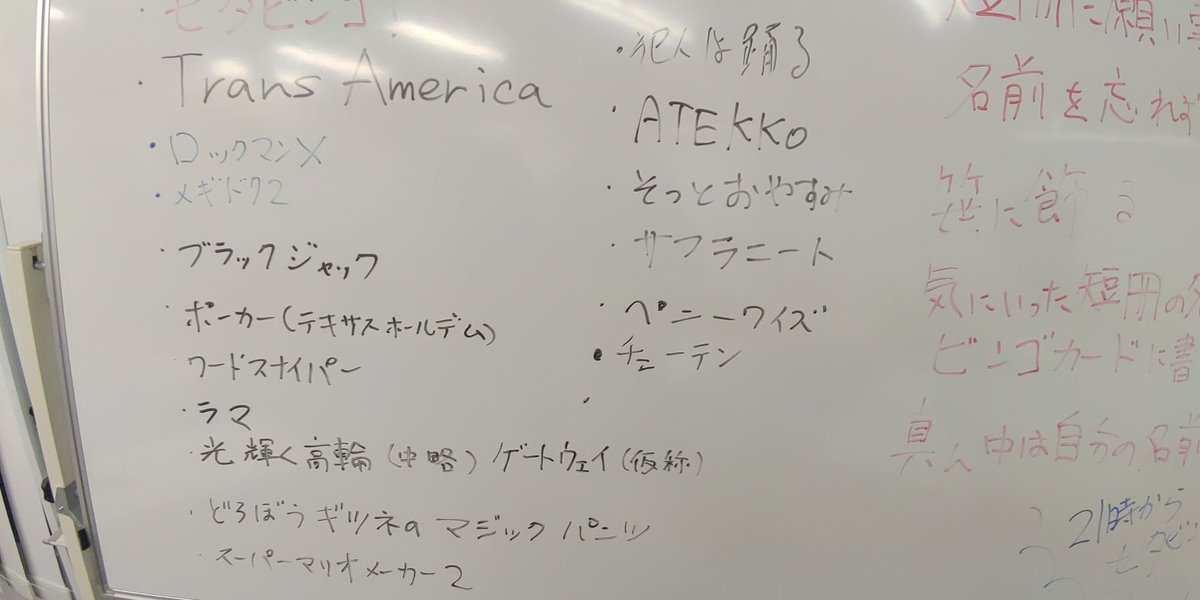 七夕ビンゴ!
・Trans America
・ロックマンX
・メギド72
・ブラックジャック
・ポーカー(テキサスホールデム)
ワードスナイパー
・ラマ
・光輝く高輪(中略)ゲートウェイ(仮称)
・どろぼうギツネのマジックパンツ
・スーパーマリオメーカー2
・犯人は踊る
・ATEKKO
・そっとおやすみ
・サフラニート
・ペニーワイズ
・チューテン
・
に願い
名前を忘れず
笹に飾る
気にいった短冊の
ビンゴカードに書
真ん中は自分の名前
21時から
七夕ビ